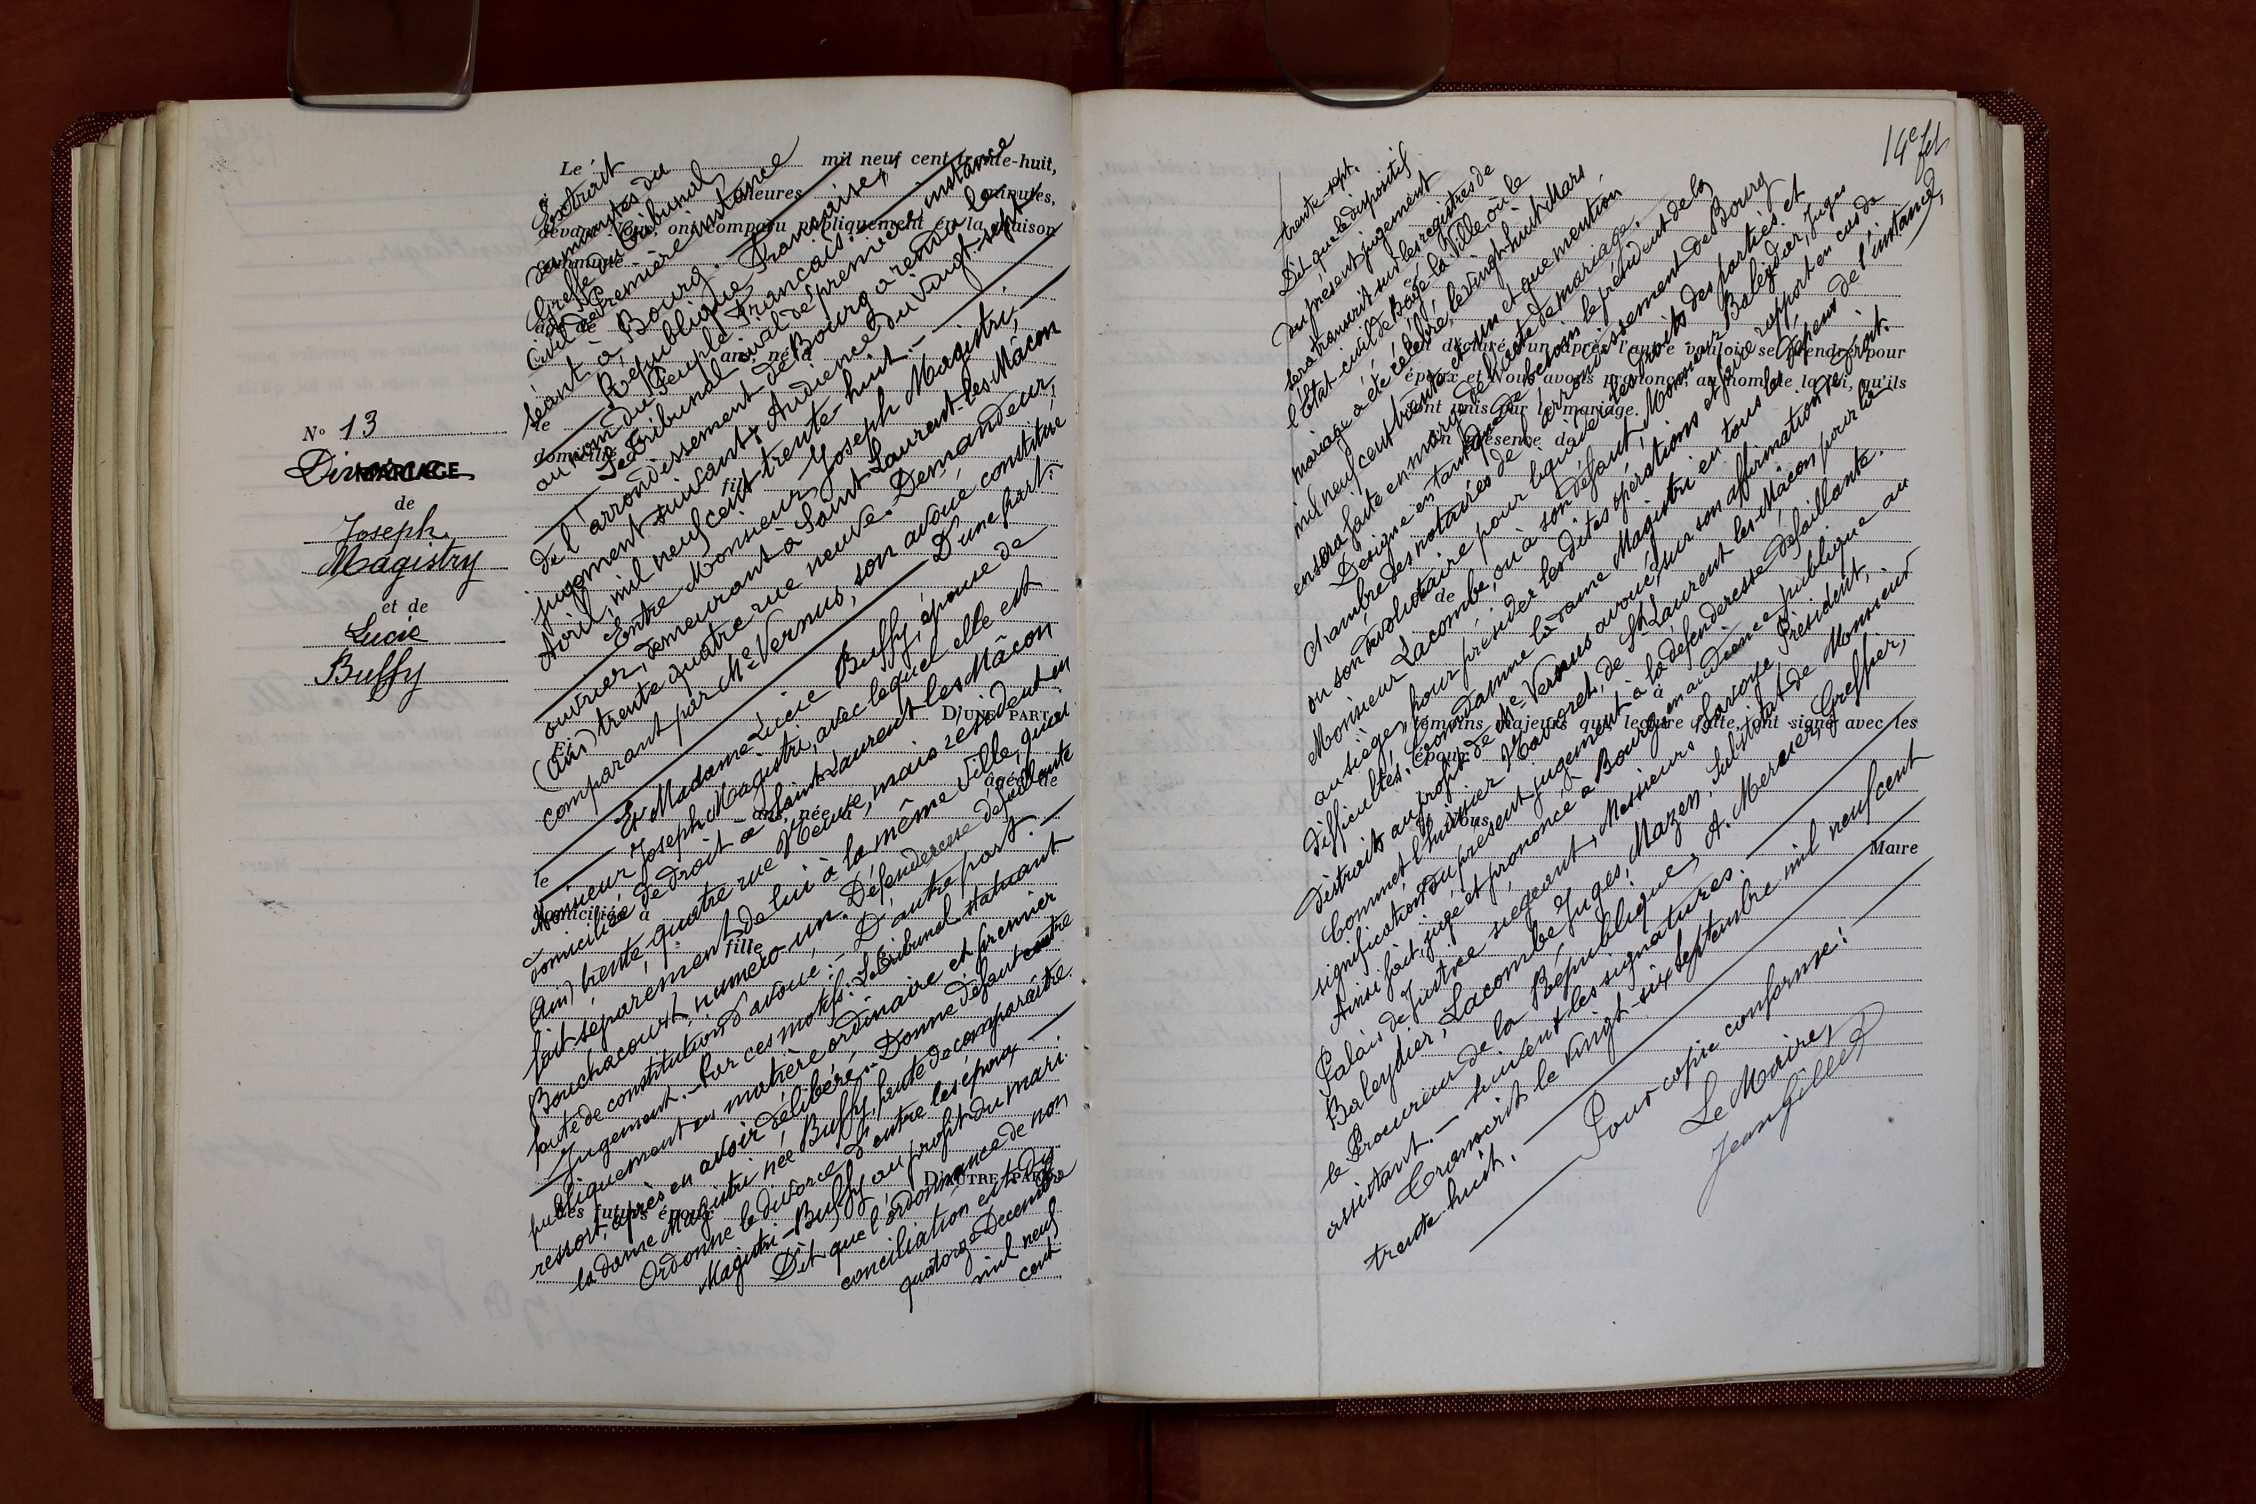 N° 13
Divorce
MARIAGE
de
Joseph
Magistry
et de
Lucie
Buffy
Le mil neuf cent trente-huit,
heures minutes,
devant Nous ont comparu publiquement en la maison
commune
âgé de
ans, né à
le
domicilié à
fils
D'UNE PART.
Et
âgée de
ans, née à
le
domiciliée à
fille
D'AUTRE PART.
Les futurs époux
Extrait
des minutes du
Greffe du Tribunal
Civil de Première instance
séant à Bourg. —
République Française,
au nom du Peuple Français. —
Le Tribunal civil de première instance
de l'arrondissement de Bourg a rendu le
jugement suivant, Audience du vingt-sept
Avril, mil neuf cent trente-huit. —
Entre Monsieur Joseph Magistri,
ouvrier, demeurant à Saint Laurent-les-Mâcon
(Ain) trente quatre rue neuve. Demandeur,
comparant par Me Vernus, son avoué constitué
D'une part:
Et Madame Lucie Buffy, épouse de
Monsieur Joseph Magistri, avec lequel elle est
domiciliée de droit à Saint Laurent les Mâcon
(Ain) trente, quatre rue Neuve, mais résident en
fait séparément de lui à la même ville, quai
Bouchacourt, numéro un. Défenderesse défaillante
faute de constitution d'avoué: — D'autre part. —
Jugement. — Par ces motifs: Le Tribunal statuant
publiquement en matière ordinaire et premier
ressort, après en avoir délibéré. — Donne défaut contre
la dame Magistri née Buffy, faute de comparaître.
Ordonne le divorce d'entre les époux —
Magistri-Buffy au profit du mari.
Dit que l'ordonnance de non
conciliation est du
quatorze Décembre
mil neuf
cent
14e fet
trente-sept.
Dit que le dispositif
du présent jugement
sera transcrit sur les registres de
l'État civil de Bâgé-la-Ville, où le
mariage a été célébré, le vingt huit Mars
mil neuf cent trente et un et que mention
en sera faite en marge de l'acte de mariage.
Désigne en tant que de besoin le président de la
Chambre des notaires de l'arrondissement de Bourg
ou son dévolutaire pour liquider les droits des parties et
Monsieur Lacombe, ou à son défaut, Monsieur Baleydier, Juges
au siège, pour présider les dites opérations et faire rapport en cas de
difficultés. Condamne la dame Magistri en tous les dépens de l'instance,
distraits au profit de Me Vernus avoué, sur son affirmation de droit.
Commet l'huissier Navoret, de St Laurent les-Mâcon pour la
signification du présent jugement à la défenderesse défaillante.
Ainsi fait, jugé et prononcé à Bourg, en audience publique au
Palais de Justice siégeant, Messieurs Président,
Baleydier, Lacombe Juges, Mazen, Substitut de Monsieur
le Procureur de la République, A. Mercier, Greffier,
assistant. — Suivent les signatures. —
Transcrit le vingt-six septembre mil neuf cent
trente huit. —
Pour copie conforme: —
Le Maire,
Jean Gillet
déclaré l'un après l'autre vouloir se prendre pour
époux et Nous avons prononcé, au nom de la loi, qu'ils
sont unis par le mariage.
En présence de
de
à
témoins majeurs qui, lecture faite, ont signé avec les
époux
et Nous
Maire